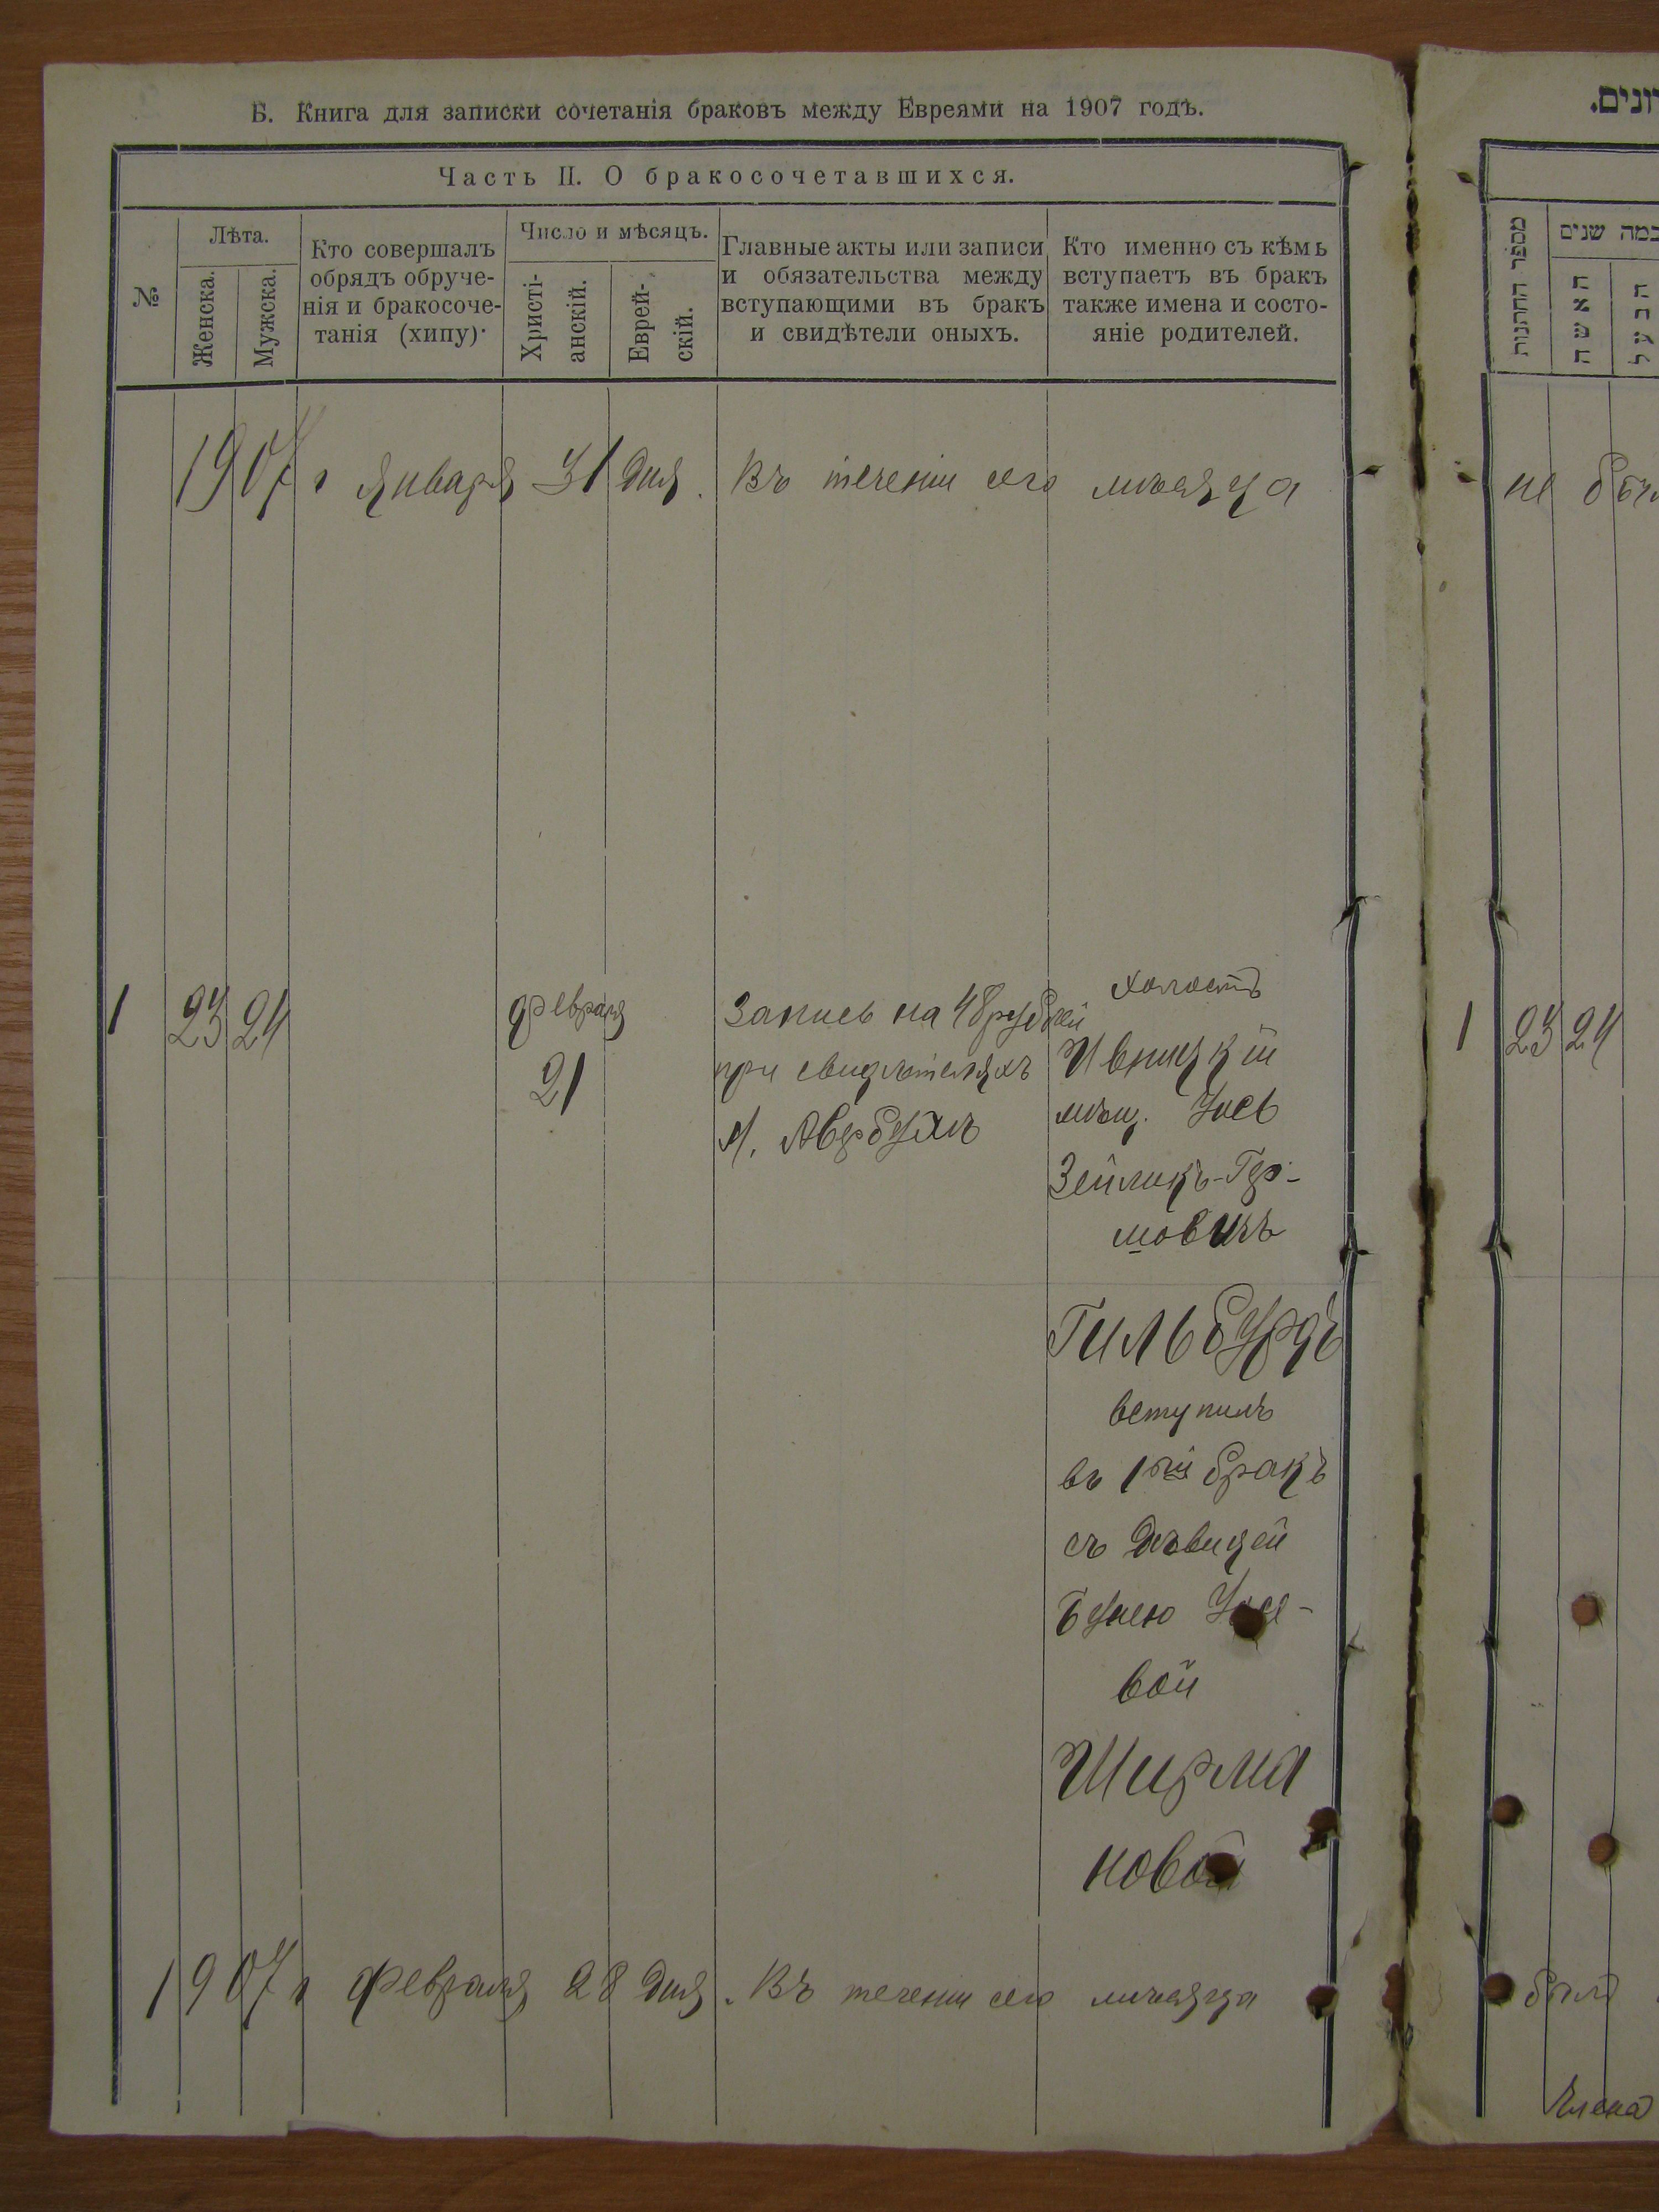 Б. Книга для записки сочетанія браковъ между Евреями на 1907 годъ.
Часть II. О бракосочетавшихся.
№
Лѣта.
Женска.
Мужска.
Кто совершалъ
обрядъ обруче-
нія и бракосоче-
танія (хипу).
Число и мѣсяцъ.
Христі-
анскій.
Еврей-
скій.
Главные акты или записи
и обязательства между
вступающими въ бракъ
и свидѣтели оныхъ.
Кто именно съ кѣмъ
вступаетъ въ бракъ
также имена и состо-
яніе родителей.
1907 г Января 31 дня. Въ теченіи сего мѣсяца
1 23 24
Февраля
21
Запись на 48 рублей
при свидѣтеляхъ
А. Авербухъ
холостъ
Ивницкій
мѣщ. Іось
Зейликъ-Гер-
шовичъ
Гильбурдъ
вступилъ
въ 1ый бракъ
съ дѣвицей
Бунею Іосе-
вой
Ширма
новой
1907 г Февраля 28 дня. Въ теченіи сего мѣсяца
מספר החתנות
כמה שנים
האשה
הבעל
не
1 23 24
было
Члена